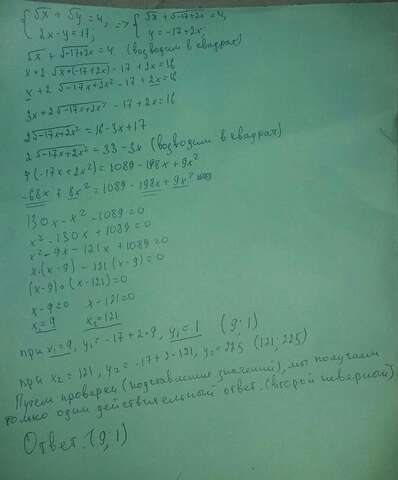 {√x + √y = 4, => {√x + √-17+2x = 4,
{2x-y=17; {y = -17+2x;
√x + √-17+2x = 4 (возводим в квадрат)
x+2√x*(-17+2x) - 17 + 2x = 16
x + 2√-17x+2x² - 17 + 2x = 16
3x + 2√-17x+2x² - 17 + 2x = 16
2√-17x+2x² = 16-3x+17
2√-17x+2x² = 33-3x (возводим в квадрат)
4(-17x+2x²) = 1089 - 198x + 9x²
-68x + 8x² = 1089 - 198x + 9x²
130x - x² - 1089 = 0
x² - 130x + 1089 = 0
x² - 9x - 121x + 1089 = 0
x*(x-9) - 121(x-9) = 0
(x-9)*(x-121) = 0
x-9=0 x-121=0
x₁=9 x₂=121
при x₁=9, y₁=-17+2*9, y₁=1 (9;1)
при x₂=121, y₂=-17+2*121, y₂=225 (121;225)
Путём проверки (подставление значений), мы получаем
только один действительный ответ. (второй неверный)
Ответ: (9;1)